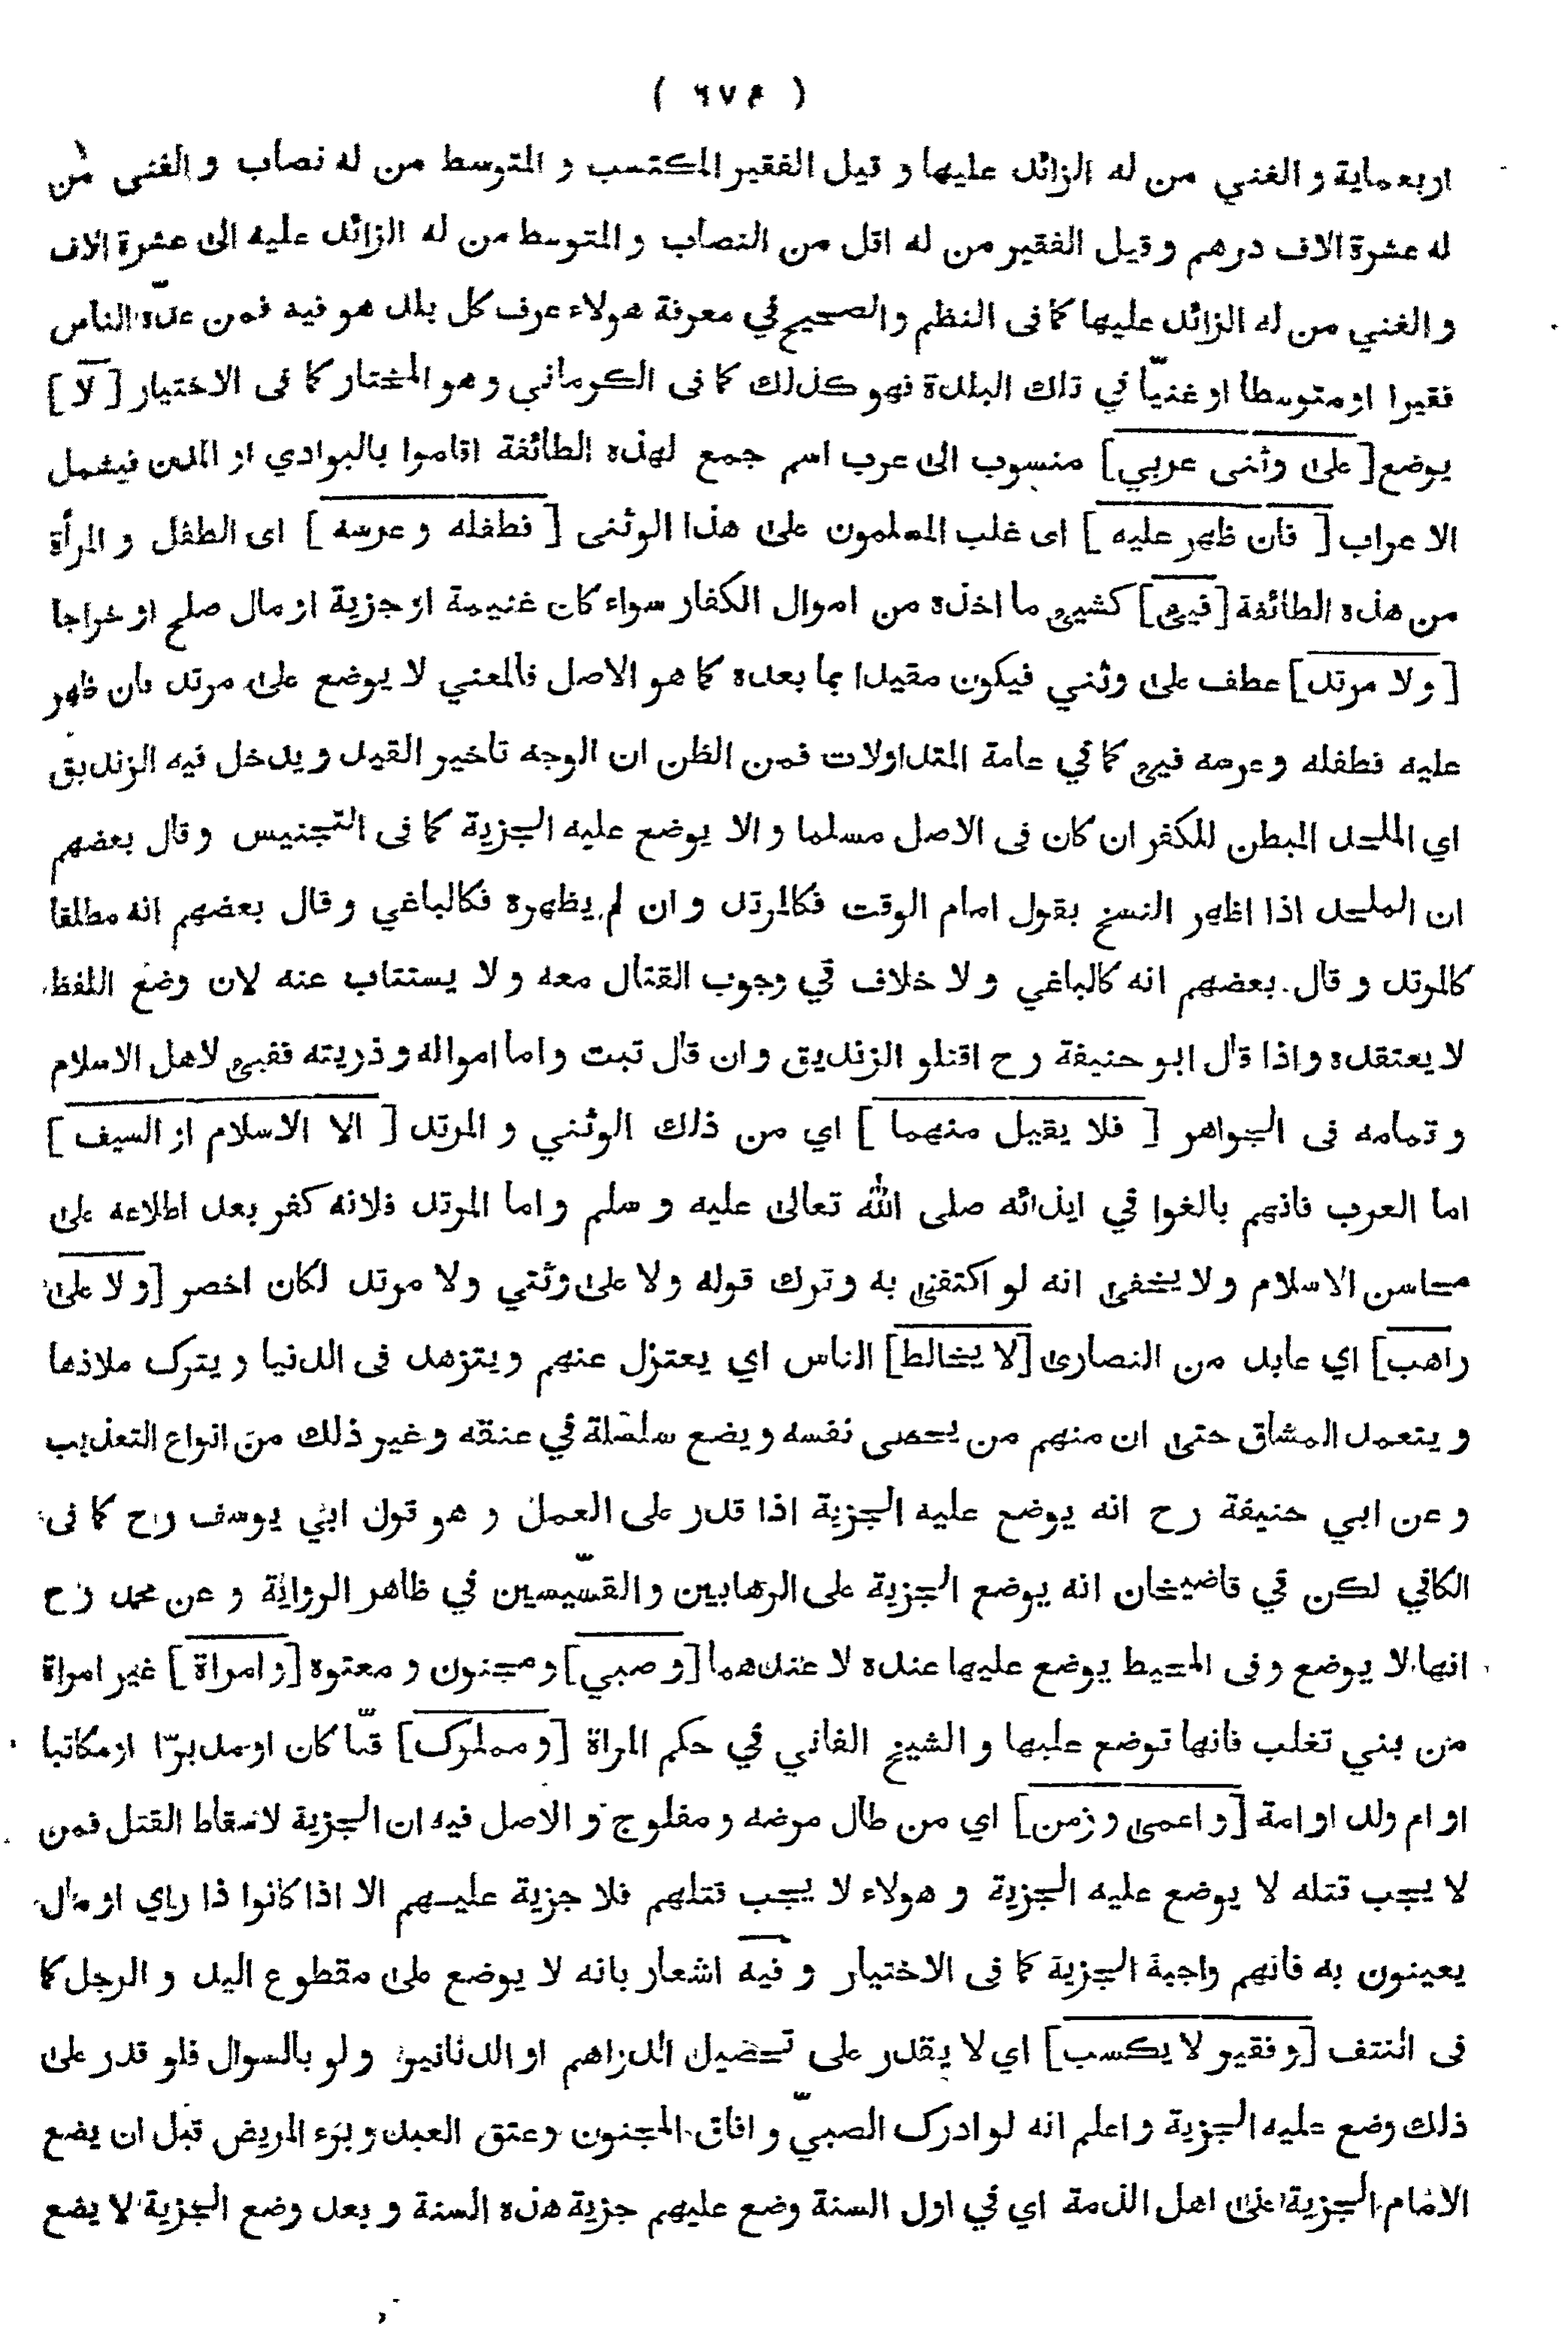 ( ٦٧٤ )
اربعماية و الغني من له الزائد عليها و قيل الفقير المكتسب و المتوسط من له نصاب و الغنى من
له عشرة الاف درهم و قيل الفقير من له اقل من النصاب و المتوسط من له الزائد عليه الى عشرة الاف
و الغني من له الزائد عليها كما فى النظم و الصحيح في معرفة هولاء عرف كل بلد هو فيه فمن عدّه الناس
فقيرا او متوسطا او غنيّا في تلك البلدة فهو كذلك كما فى الكرماني و هو المختار كما فى الاختيار [ لا ]
يوضع [ على وثنى عربي ] منسوب الى عرب اسم جمع لهذه الطائفة اقاموا بالبوادي او المدن فيشمل
الاعراب [ فان ظهر عليه ] اى غلب المسلمون على هذا الوثنى [ فطفله و عرسه ] اى الطفل و المرأة
من هذه الطائفة [ فيئ ] كشيئ ما اخذه من اموال الكفار سواء كان غنيمة او جزية او مال صلح او خراجا
[ و لا مرتد ] عطف على وثني فيكون مقيدا بما بعده كما هو الاصل فالمعني لا يوضع على مرتد فان ظهر
عليه فطفله و عرسه فيئ كما في عامة المتداولات فمن الظن ان الوجه تاخير القيد و يدخل فيه الزنديق
اي الملحد المبطن للكفر ان كان فى الاصل مسلما و الا يوضع عليه الجزية كما فى التجنيس و قال بعضهم
ان الملحد اذا اظهر النسخ بقول امام الوقت فكالمرتد و ان لم يظهره فكالباغي و قال بعضهم انه مطلقا
كالمرتد و قال بعضهم انه كالباغي و لا خلاف في وجوب القتال معه و لا يستتاب عنه لان وضع اللفظ
لا يعتقده و اذا قال ابو حنيفة رح اقتلو الزنديق و ان قال تبت و اما امواله و ذريته ففيئ لاهل الاسلام
و تمامه فى الجواهر [ فلا يقبل منهما ] اي من ذلك الوثني و المرتد [ الا الاسلام او السيف ]
اما العرب فانهم بالغوا في ايذائه صلى الله تعالى عليه و سلم و اما المرتد فلانه كفر بعد اطلاعه على
محاسن الاسلام و لا يخفى انه لو اكتفى به و ترك قوله و لا على وثني ولا مرتد لكان اخصر [ و لا على
راهب ] اي عابد من النصارى [ لا يخالط ] الناس اي يعتزل عنهم و يتزهد فى الدنيا و يترك ملاذها
و يتحمل المشاق حتى ان منهم من يخصى نفسه و يضع سلسلة في عنقه و غير ذلك من انواع التعذيب
و عن ابي حنيفة رح انه يوضع عليه الجزية اذا قدر على العمل و هو قول ابي يوسف رح كما فى
الكافي لكن في قاضيخان انه يوضع الجزية على الرهابين و القسّيسين في ظاهر الرواية و عن محمد رح
انها لا يوضع و فى المحيط يوضع عليها عنده لا عندهما [ و صبي ] و مجنون و معتوه [ و امراة ] غير امراة
من بني تغلب فانها توضع عليها و الشيخ الفاني في حكم المراة [ و مملوك ] قنّا كان او مدبرّا او مكاتبا
او ام ولد او امة [ و اعمى و زمن ] اي من طال مرضه و مفلوج و الاصل فيه ان الجزية لاسقاط القتل فمن
لا يجب قتله لا يوضع عليه الجزية و هولاء لا يجب قتلهم فلا جزية عليهم الا اذا كانوا ذا راي او مال
يعينون به فانهم واجبة الجزية كما فى الاختيار و فيه اشعار بانه لا يوضع على مقطوع اليد و الرجل كما
فى النتف [ و فقير لا يكسب ] اي لا يقدر على تحصيل الدراهم او الدنانير و لو بالسوال فلو قدر على
ذلك وضع عليه الجزية و اعلم انه لو ادرك الصبيّ و افاق المجنون و عتق العبد و برء المريض قبل ان يضع
الامام الجزية على اهل الذمة اي في اول السنة وضع عليهم جزية هذه السنة و بعد وضع الجزية لا يضع